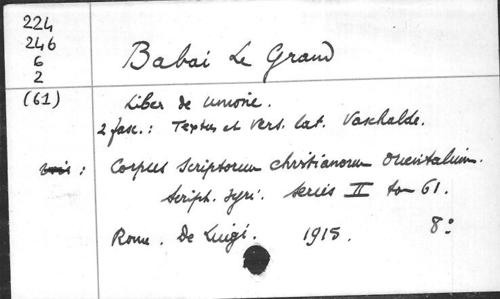 224
246
6
2
(61)
Babai Le Grand
Liber de unione.
2 fasc.: Textus et Vers. lat. Vaschalde.
Corpus Scriptorum christianorum Orientalium.
Script. Syri. Series II tom 61.
Rome. de Luigi. 1915. 8°